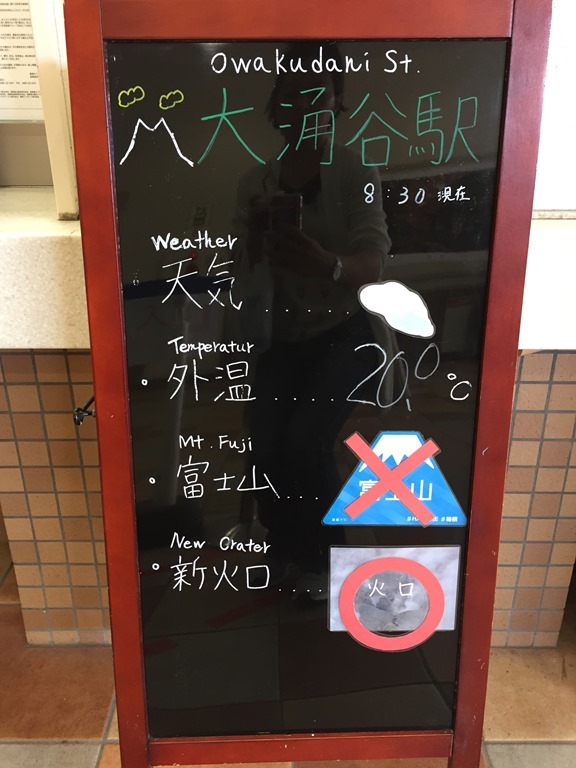 Owakudani St.
大涌谷駅
8:30 現在
Weather
天気 ......
Temperatur
外温 .... 20.0 ℃
Mt. Fuji
富士山 ....
富士山
New Crater
新火口 .....
火口